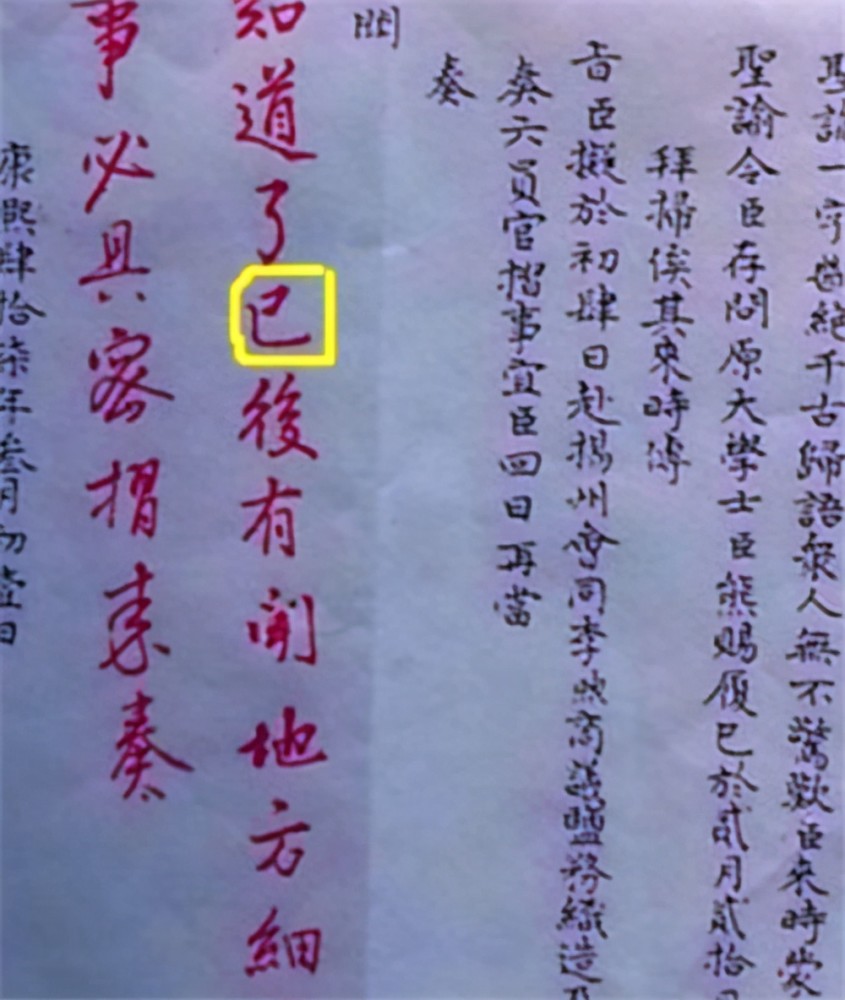 聖諭一字無絕千古歸語衆人無不驚歎臣來時蒙
聖諭令臣存問原大學士臣熊賜履已於貳月貳拾
拜掃俟其來時傳
旨臣擬於初肆日赴揚州會同李煦商議鹽務織造
奏六員官摺事宜臣回日再當
奏
聞
知道了已後有聞地方細
事必具密摺來奏
康熙肆拾柒年叁月初壹日